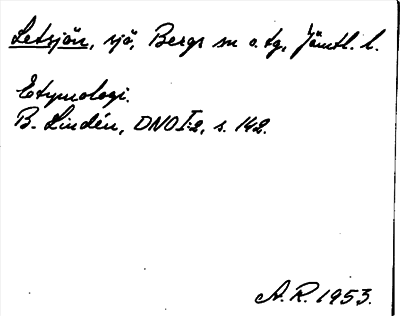 Letsjön, sjö, Bergs sn o. tg, Jämtl. l.
Etymologi.
B. Lindén, DNO I:2, s. 142.
A. R. 1953.